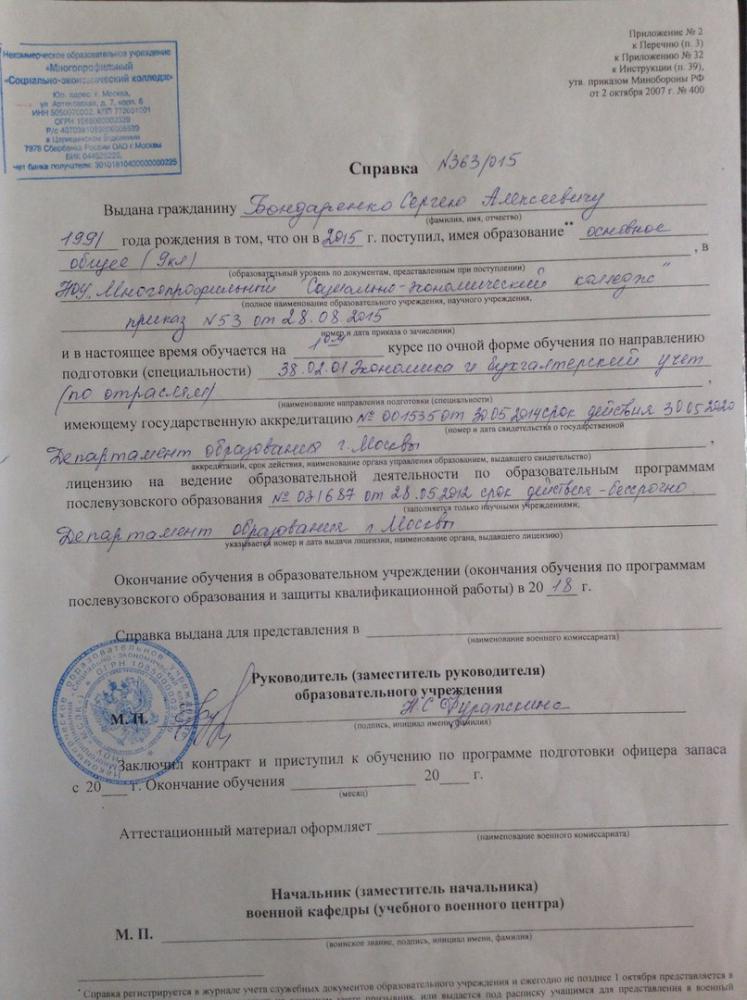 Приложение № 2
к Перечню (п. 3)
к Приложению № 32
к Инструкции (п. 39),
утв. приказом Минобороны РФ
от 2 октября 2007 г. № 400
Некоммерческое образовательное учреждение
«Многопрофильный
«Социально-экономический колледж»
Юр. адрес: г. Москва,
ул. Артековская, д. 7, корп. 6
в Царицинском отделении
7978 Сбербанка России ОАО г.Москвы
Справка №363/015
Выдана гражданину Бондаренко Сергею Алексеевичу
(фамилия, имя, отчество)
1991 года рождения в том, что он в 2015 г. поступил, имея образование** основное
общее (9кл) , в
(образовательный уровень по документам, представленным при поступлении)
НОУ „Многопрофильный "Социально-экономический колледж"
(полное наименование образовательного учреждения, научного учреждения,
приказ №53 от 28.08.2015
номер и дата приказа о зачислении)
и в настоящее время обучается на 1ом курсе по очной форме обучения по направлению
подготовки (специальности) 38.02.01 Экономика и бухгалтерский учет
(по отраслям) ,
(наименование направления подготовки (специальности)
имеющему государственную аккредитацию № 001535 от 30.05.2014 срок действия 30.05.2020
(номер и дата свидетельства о государственной
Департамент образования г. Москвы ,
аккредитации, срок действия, наименование органа управления образованием, выдавшего свидетельство)
лицензию на ведение образовательной деятельности по образовательным программам
послевузовского образования № 031687 от 28.05.2012 срок действия - бессрочно
(заполняется только научными учреждениями,
Департамент образования г. Москвы
указывается номер и дата выдачи лицензии, наименование органа, выдавшего лицензию)
Окончание обучения в образовательном учреждении (окончания обучения по программам
послевузовского образования и защиты квалификационной работы) в 20 18 г.
Справка выдана для представления в
(наименование военного комиссариата)
Руководитель (заместитель руководителя)
образовательного учреждения
М.П. Н.С.
(подпись, инициал имени, фамилия)
Заключил контракт и приступил к обучению по программе подготовки офицера запаса
с 20___ г. Окончание обучения ____________ 20___ г.
(месяц)
Аттестационный материал оформляет
(наименование военного комиссариата)
Начальник (заместитель начальника)
военной кафедры (учебного военного центра)
М. П.
(воинское звание, подпись, инициал имени, фамилия)
* Справка регистрируется в журнале учета служебных документов образовательного учреждения и ежегодно не позднее 1 октября представляется в
призывник, или выдается под расписку учащимся для представления в военный